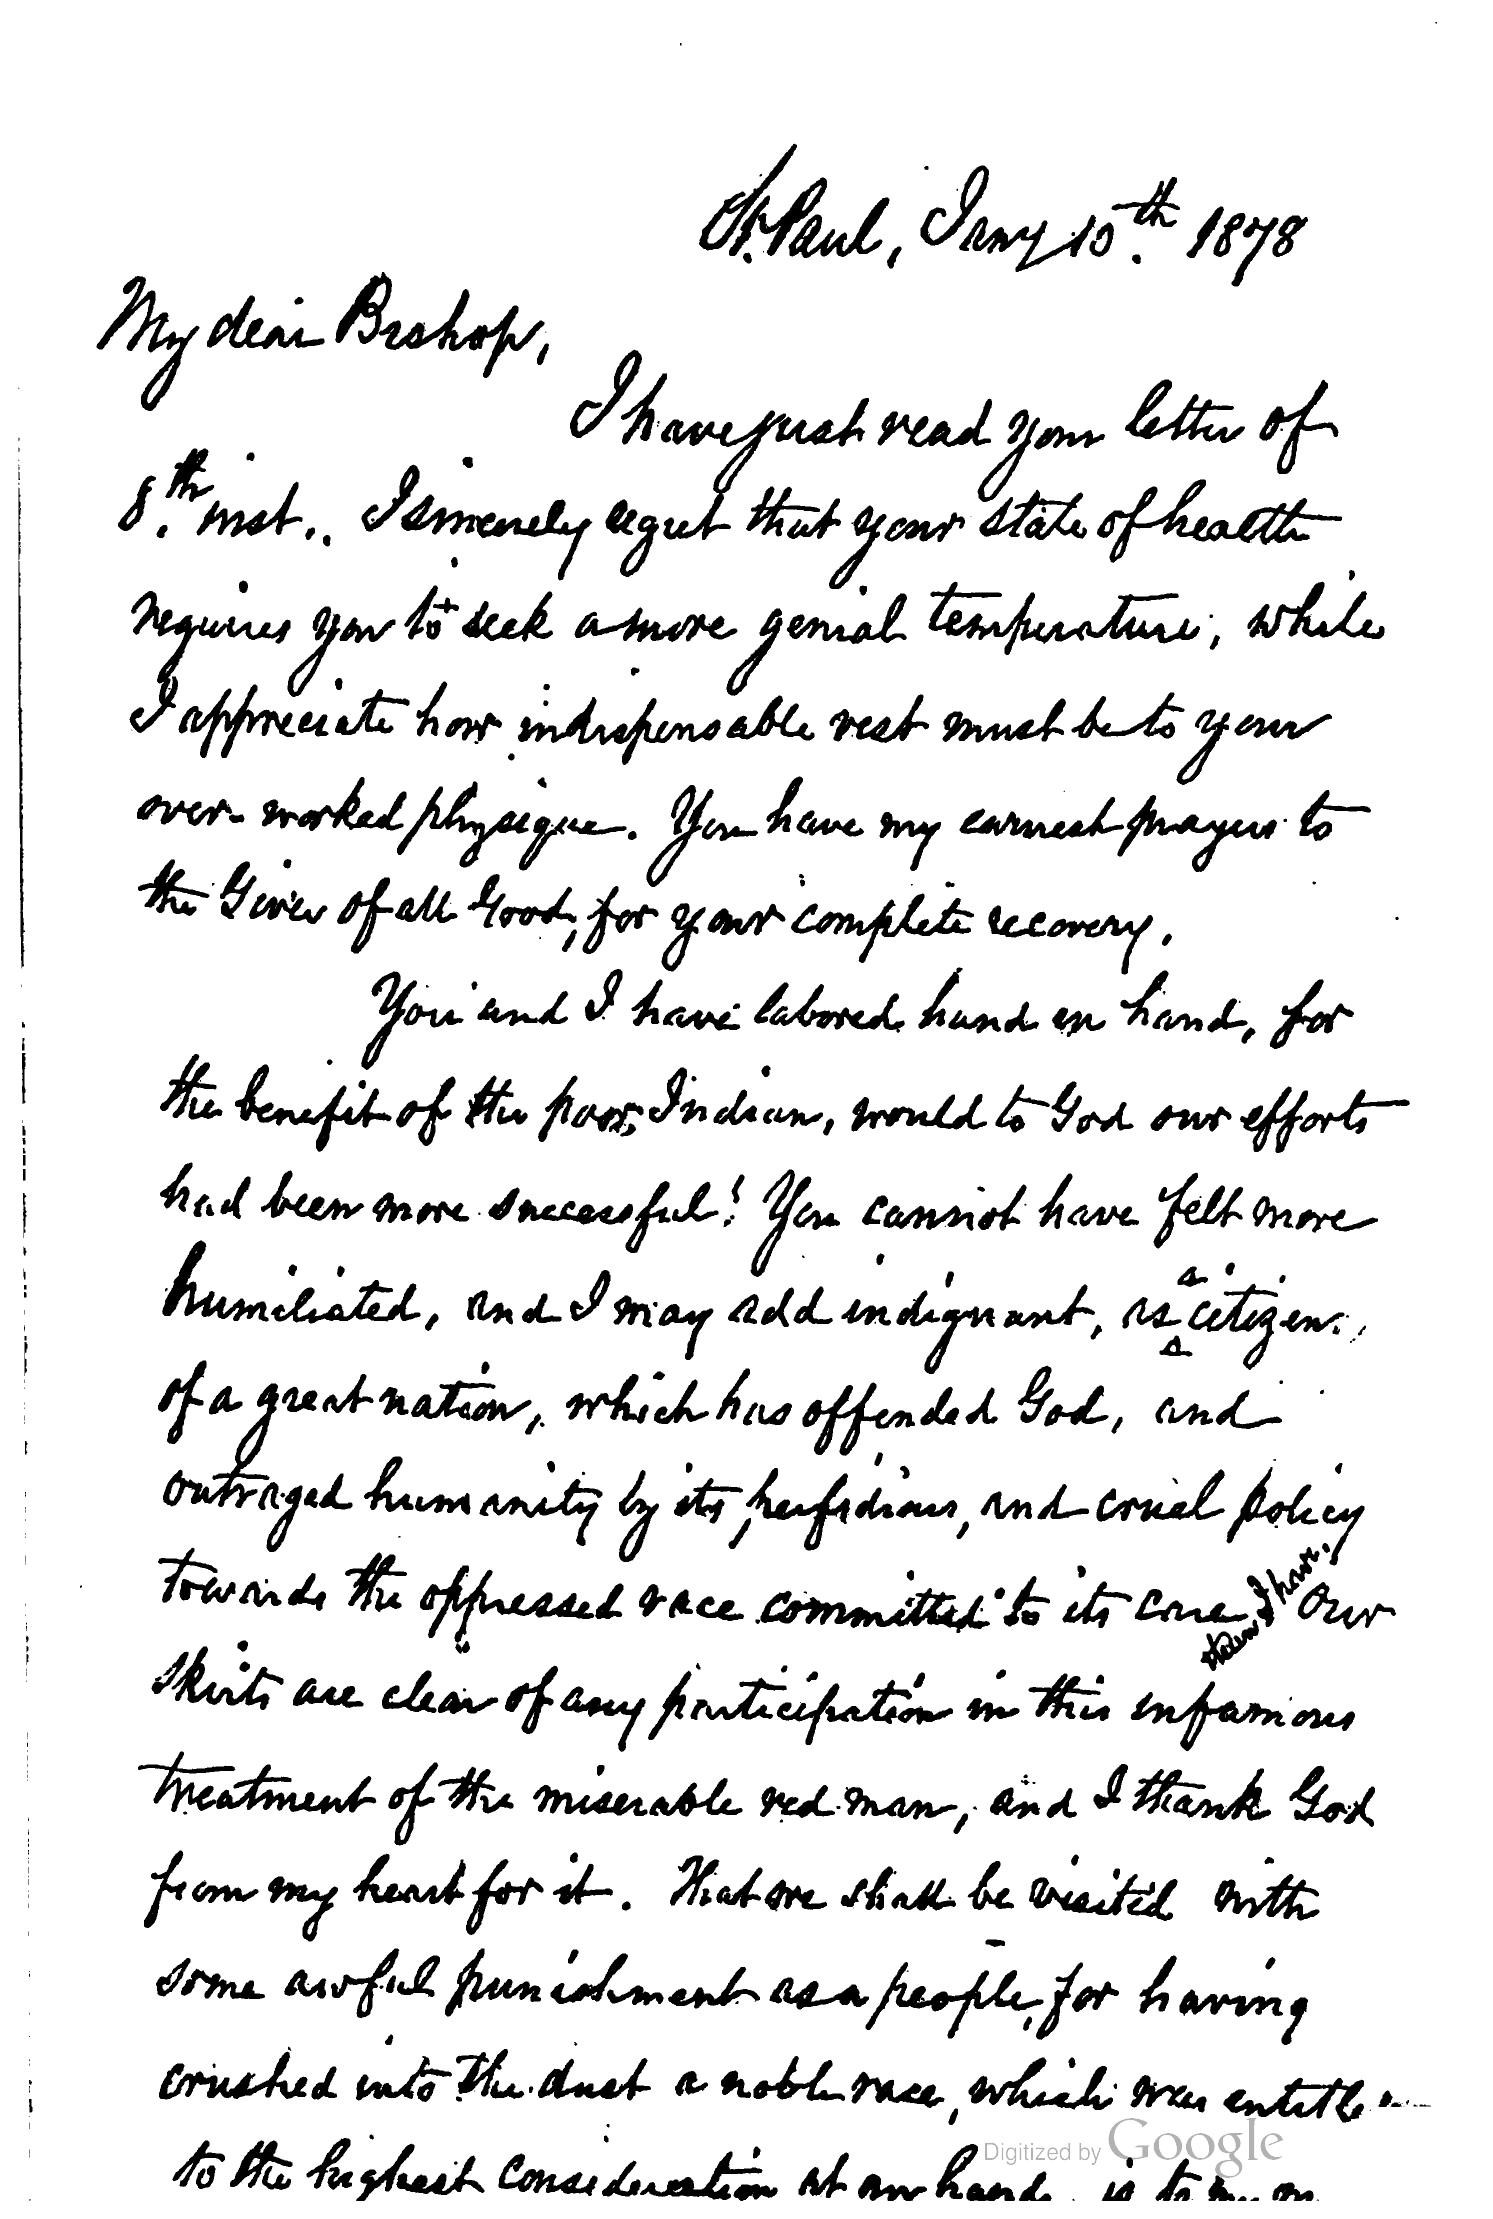 St. Paul, Jany 10th. 1878
My dear Bishop,
I have just read your letter of
8th. inst.. I sincerely regret that your state of health
requires you to seek a more genial temperature, while
I appreciate how indispensable rest must be to your
over-worked physique. You have my earnest prayers to
the Giver of all Good, for your complete recovery.
You and I have labored hand in hand, for
the benefit of the poor Indian, would to God our efforts
had been more successful! You cannot have felt more
humiliated, and I may add indignant, as a citizen
of a great nation, which has offended God, and
outraged humanity by its perfidious, and cruel policy
towards the oppressed race committed to its care than I have. Our
skirts are clear of any participation in this infamous
treatment of the miserable red man, and I thank God
from my heart for it. That we shall be visited with
some awful punishment as a people, for having
crushed into the dust a noble race, which was entitle
to the highest consideration at our hands, is to my
Digitized by Google